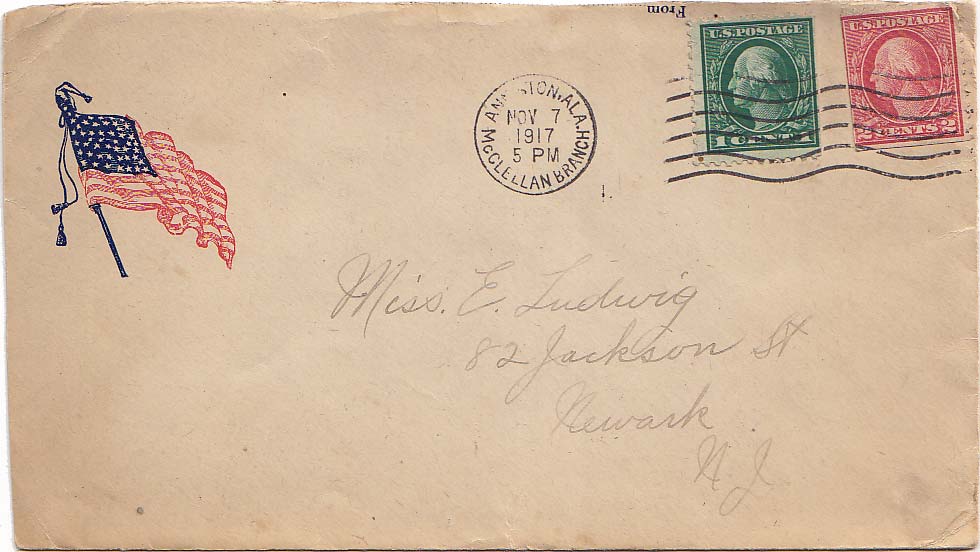 From
U.S. POSTAGE
1 CENT 1
U.S. POSTAGE
2 CENTS 2
ANNISTON, ALA.
McCLELLAN BRANCH
NOV 7
1917
5 PM
1.
Miss. E. Ludwig
82 Jackson St
Newark
N. J.